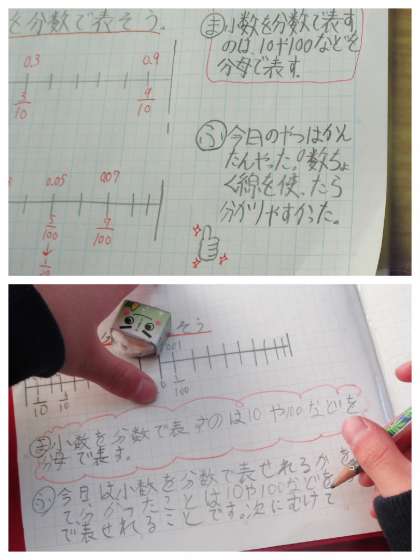 を分数で表そう。
0.3 0.9
3/10 9/10
0.05 0.07
5/100 9/100
↓
ま 小数を分数で表す
のは10や100などを
分母で表す。
ふ 今日のやつはかん
たんやった。数ちょ
く線を使ったら
分かりやすかった。
そう
0.01
0 1/100
1/10
ま 小数を分数で表すのは10や100などを
分母で表す。
ふ 今日は小数を分数で表せれるかを
て、分かったことは10や100などを
で表せれることです。次にむけて